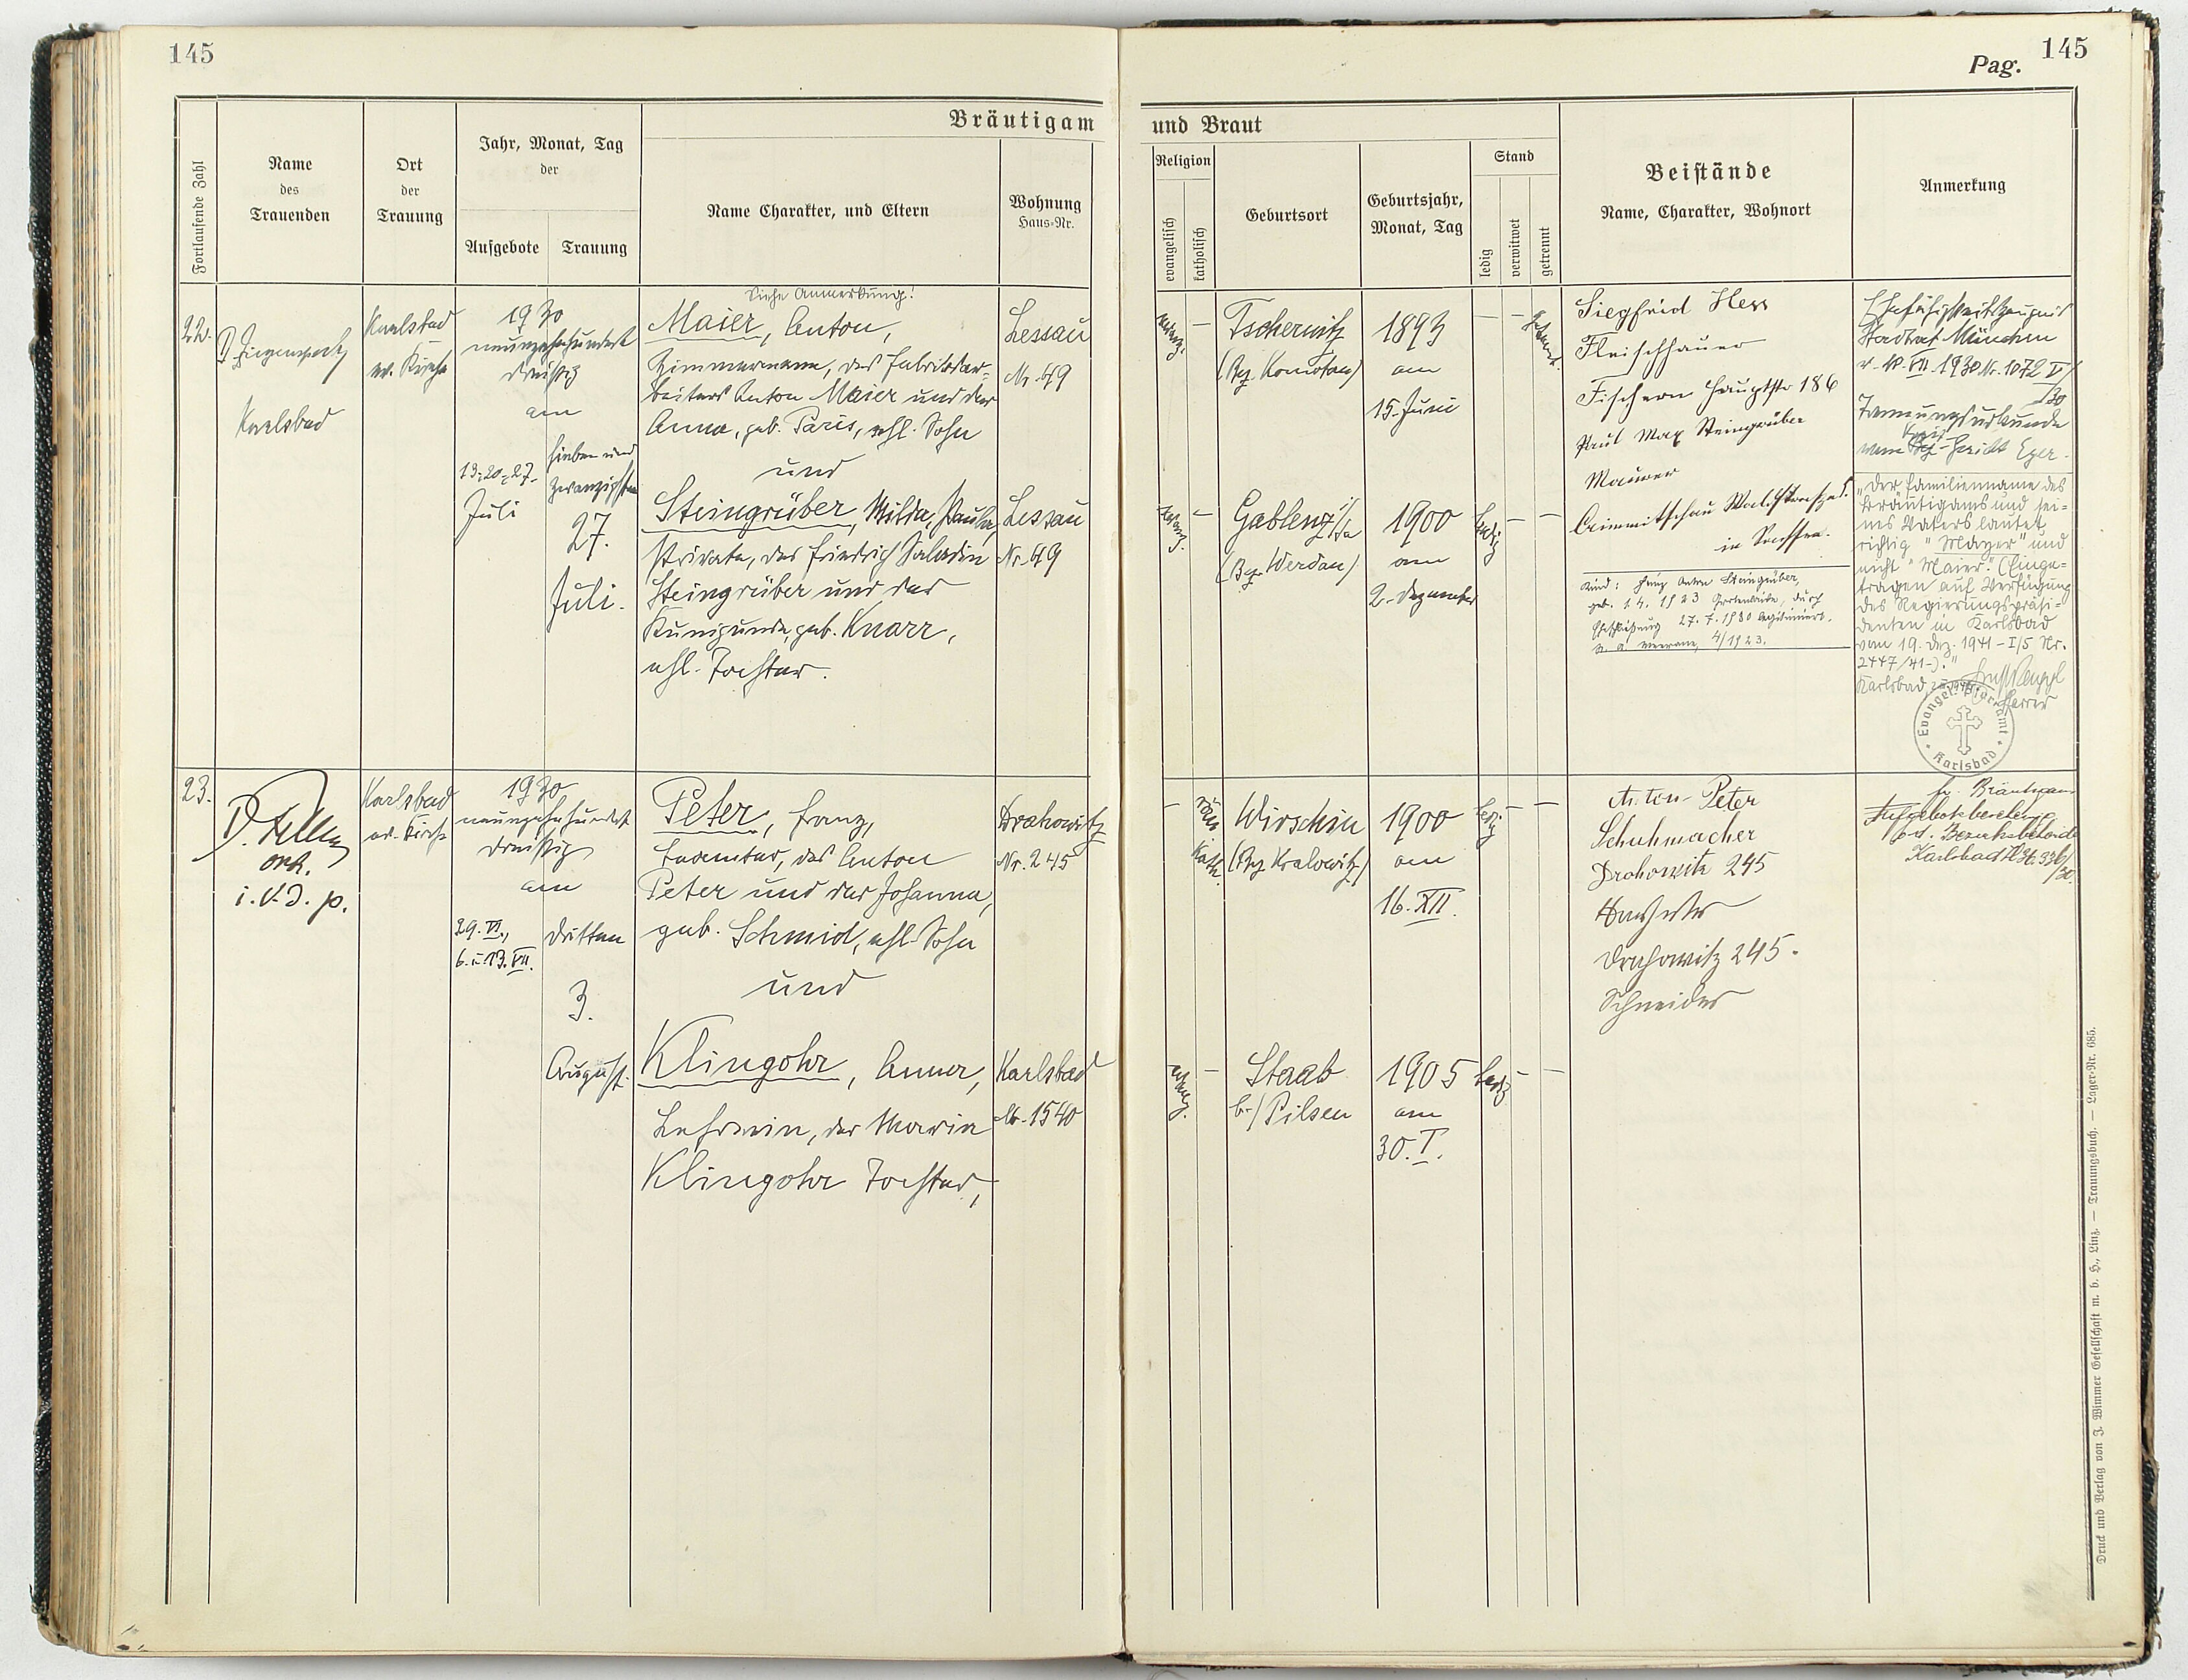 145
Pag.
145
Bräutigam
und Braut
Fortlaufende Zahl
Name
des
Trauenden
Ort
der
Trauung
Jahr, Monat, Tag
der
Aufgebote
Trauung
Name Charakter, und Eltern
Wohnung
Haus-Nr.
Religion
evangelisch
katholisch
Geburtsort
Geburtsjahr,
Monat, Tag
Stand
ledig
verwitwet
getrennt
Beistände
Name, Charakter, Wohnort
Anmerkung
22.
Karlsbad
Karlsbad
ev. Kirche
1930
neunzehnhundert
dreißig
am
13., 20., 27.
Juli
sieben und
zwanzigsten
27.
Juli.
Siehe Anmerkung!
Maier, Anton,
Zimmermann, des Fabriksar-
beiters Anton Maier und der
Anna, geb. Paris, ehl. Sohn
und
Steingrüber, Milda, Paula,
Private, des Friedrich Saladin
Steingrüber und der
Kunigunde geb. Knarr,
ehl. Tochter.
Lessau
Nr. 49
Lessau
Nr. 49
evang.
Tschernitz
(Bez. Komotau)
1893
am
15. Juni
getrennt.
evang.
Gablenz
(Bez. Werdau)
1900
am
2. Dezember
ledig
Siegfried Hess
Fleischhauer
Fischern Hauptstr 186
Paul Max Steingrüber
Maurer
Crimmitschau
in Sachsen.
Kind: Heinz Anton Steingrüber,
geb. 1.4. 1923 durch
Eheschließung 27.7.1930 legitimiert.
4/1923.
Ehefähigkeitszeugnis
Stadtrat München
1930 Nr. 1072 V/
30
Trennungsurkunde
vom Kreis-Gericht Eger.
"Der Familienname des
Bräutigams und sei-
nes Vaters lautet
richtig "Mayer" und
nicht "Maier". (Einge-
tragen auf Verfügung
des Regierungspräsi-
denten in Karlsbad
vom 19. Dez. 1941 - I/5 Nr.
2447/41-)."
Karlsbad
Pfarrer
Evangel. Pfarramt
Karlsbad
23.
i.V.D.p.
Karlsbad
ev. Kirche
1930
neunzehnhundert
dreißig
am
29. VI.,
6. u. 13. VII.
dritten
3.
August.
Peter, Franz,
Beamter, des Anton
Peter und der Johanna,
geb. Schmid, ehl. Sohn
und
Klingohr, Anna,
Lehrerin, der Maria
Klingohr Tochter,
Drahowitz
Nr. 245
Karlsbad
Nr. 1540
röm.
kath.
Wirschin
(Bez. Kralowitz)
1900
am
16. XII.
ledig
evang.
Staab
b./Pilsen
1905
am
30. I.
ledig
Anton Peter
Schuhmacher
Drahowitz 245
Drahowitz 245.
Schneider
Bräutigam
Bezirksbehörde
Karlsbad
Druck und Verlag von J. Wimmer Gesellschaft m. b. H., Linz. — Trauungsbuch. — Lager-Nr. 685.